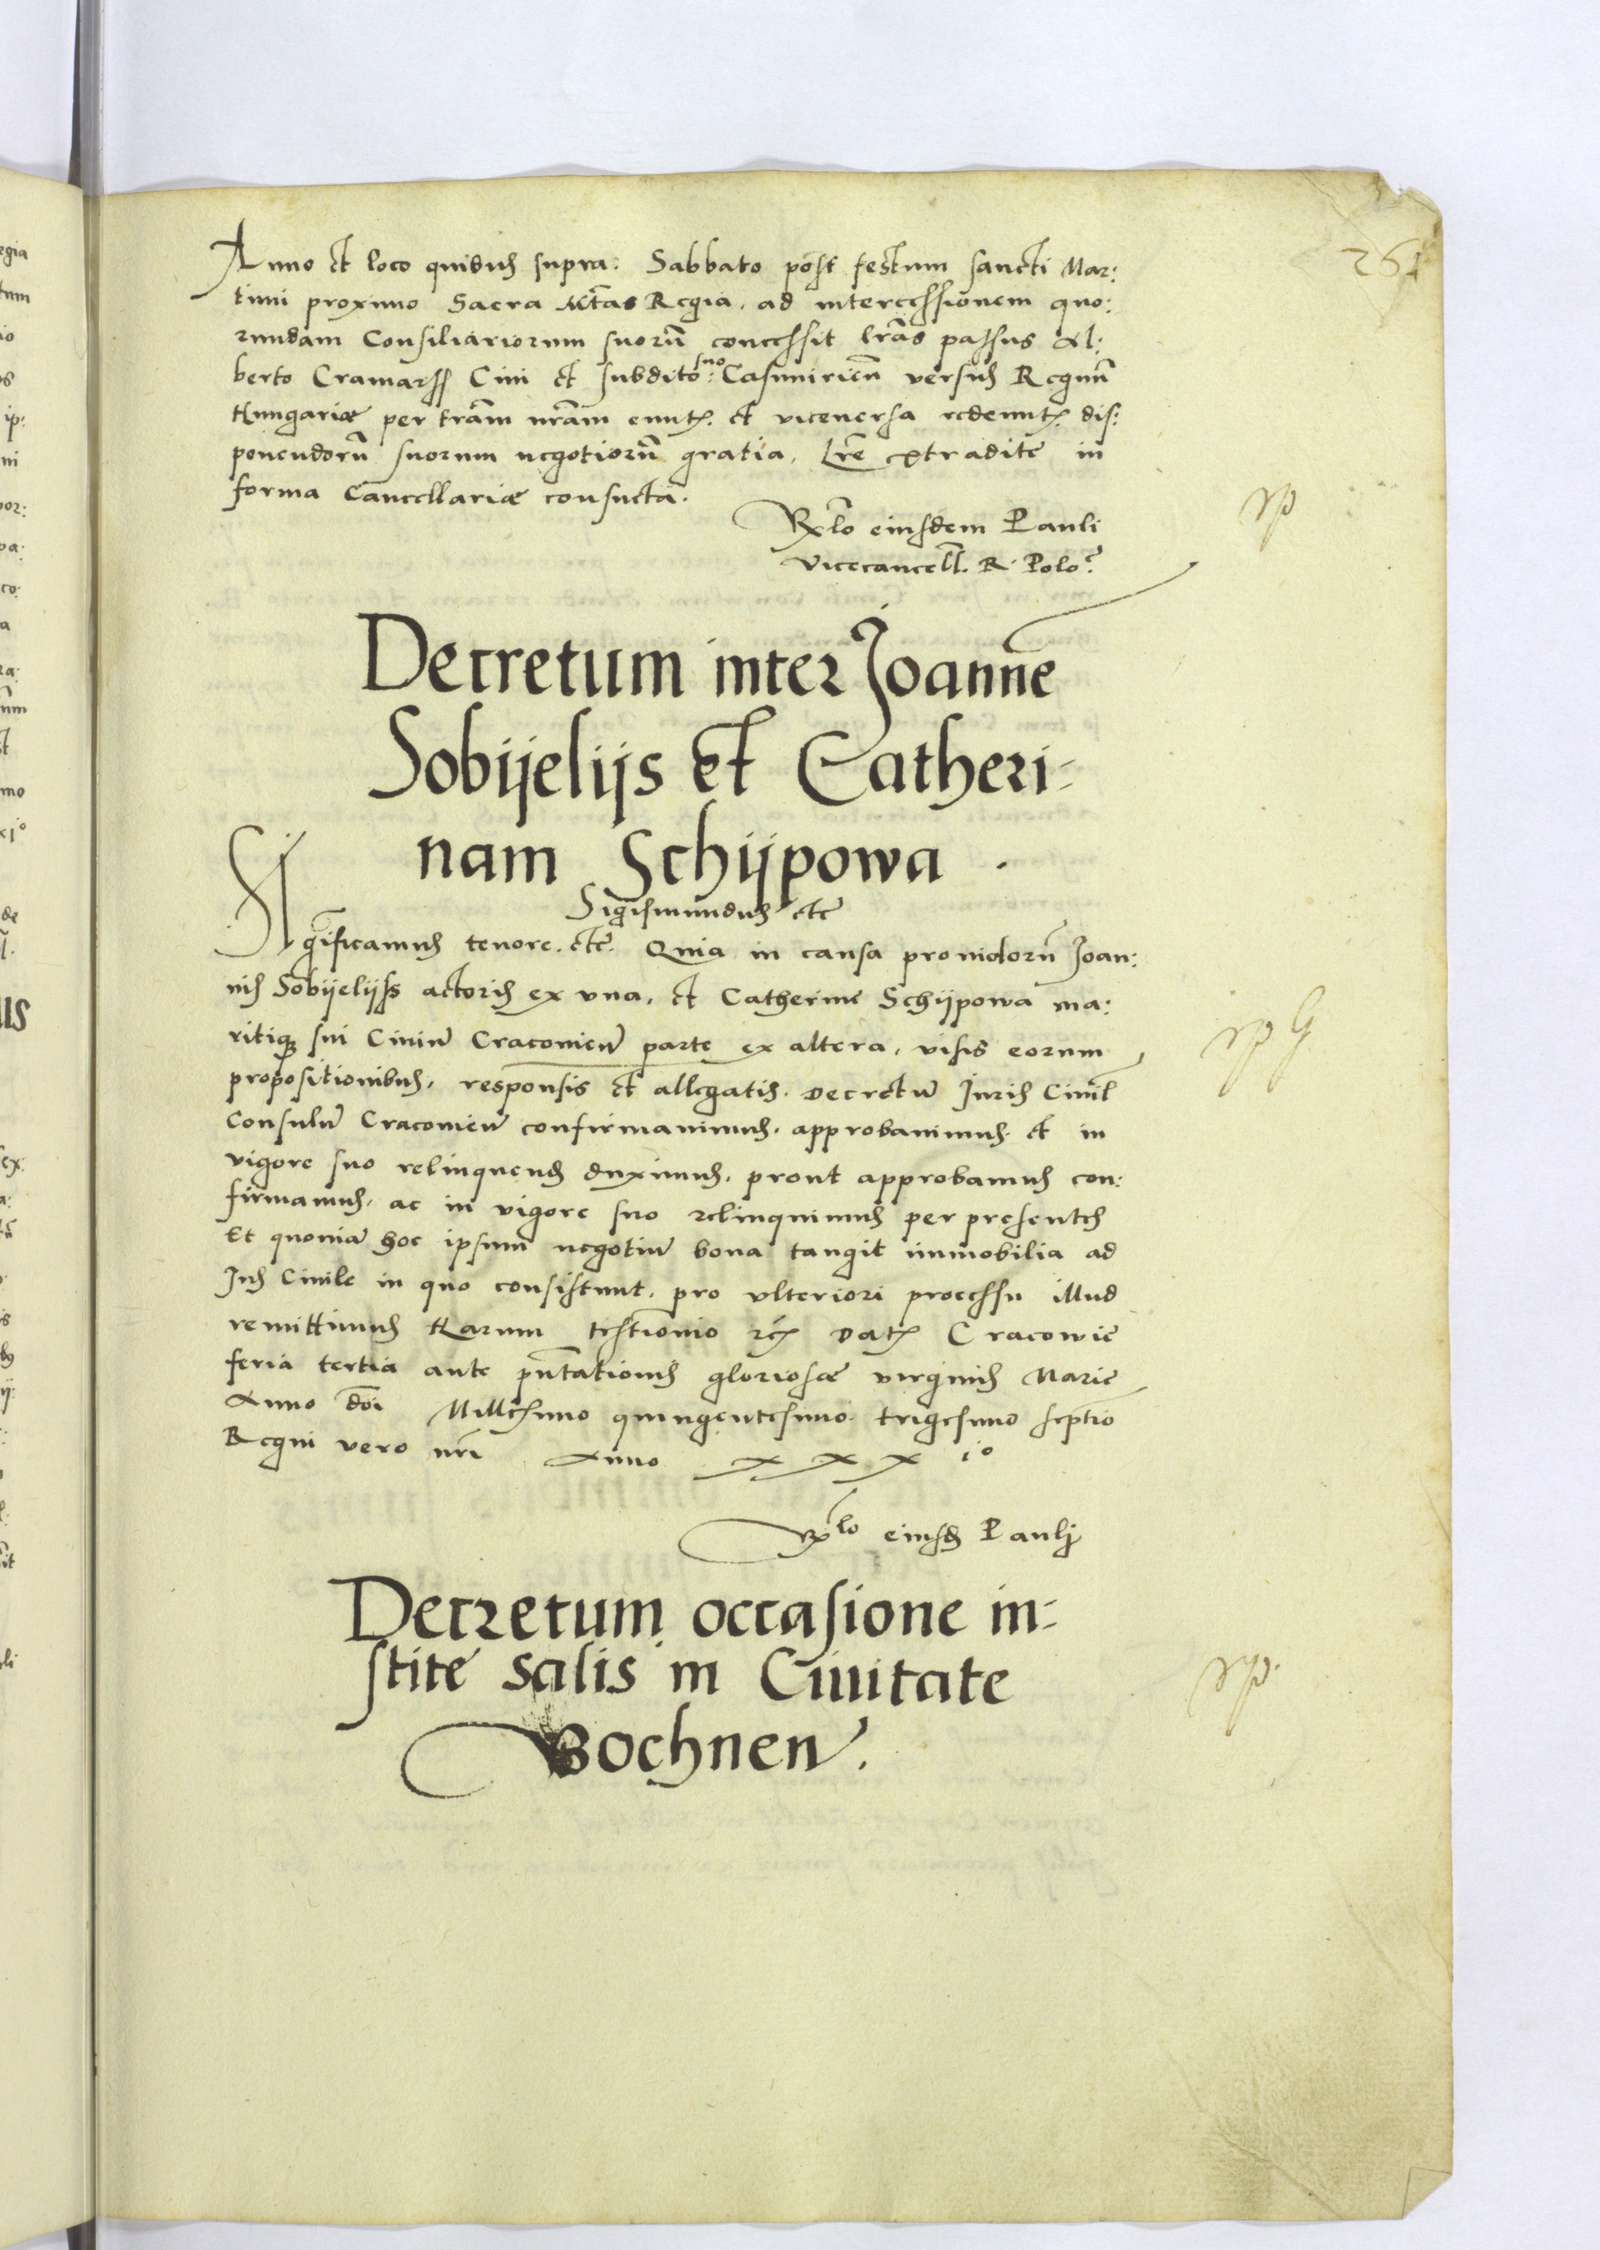 261
Anno et loco quibus supra: Sabbato post festum sancti Mar:
tini proximo Sacra Mtas Regia, ad intercessionem quo:
rundam Consiliariorum suorū concessit lras passus Al:
berto Cramarss Ciui et subdito suo Casimirien̄ versus Regnū
Hungariæ per trām nrām eunt. et viceuersa redeunt. dis:
ponendorū suorum negotiorū gratia, Lrē extraditē in
forma Cancellariæ consueta.
Rlo eiusdem Pauli
Vicecancell. R. Polo.
rp
Decretum inter Joannē
Sobijelijs et Catheri-
nam Schijpowa.
Sigismundus etc
Significamus tenore. etc. Quia in causa prouidorū Joan:
nis Sobijelijss actoris ex vna, et Catherine Schijpowa ma:
ritiq sui Ciuiū Cracouien̄ parte ex altera, visis eorum
propositionibus, responsis et allegatis. Decretū Juris Ciuil
Consulū Cracouien̄ confirmauimus. approbauimus. et in
vigore suo relinquend duximus, prout approbamus con:
firmamus. ac in vigore suo relinquimus per presentes
Et quoniā hoc ipsum negotiū bona tangit immobilia ad
Jus Ciuile in quo consistunt, pro vlteriori processu illud
remittimus Harum testimonio Dat Cracowie
feria tertia ante pn̄tationis gloriosæ virginis Marie
Anno dōi Millesimo quingentesimo trigesimo septīo
Regni vero nrī Anno x x x io
rp G
Rlo eiusd Paulj
Decretum occasione in-
stitē salis in Ciuitate
Bochnen.
rp.